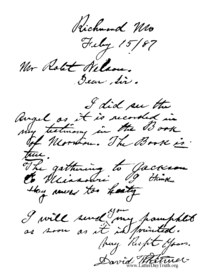 Richmond Mo
Feby 15/87
Mr Robt Nelson.
Dear Sir.
I did see the
Angel as it is recorded in
my testimony in the Book
of Mormon. The Book is
true.
The gathering to Jackson
Co Missouri I think
they were too hasty
I will send you my pamphlet
as soon as it is printed.
Very Respt Yours.
David Whitmer
www.LatterDayTruth.org